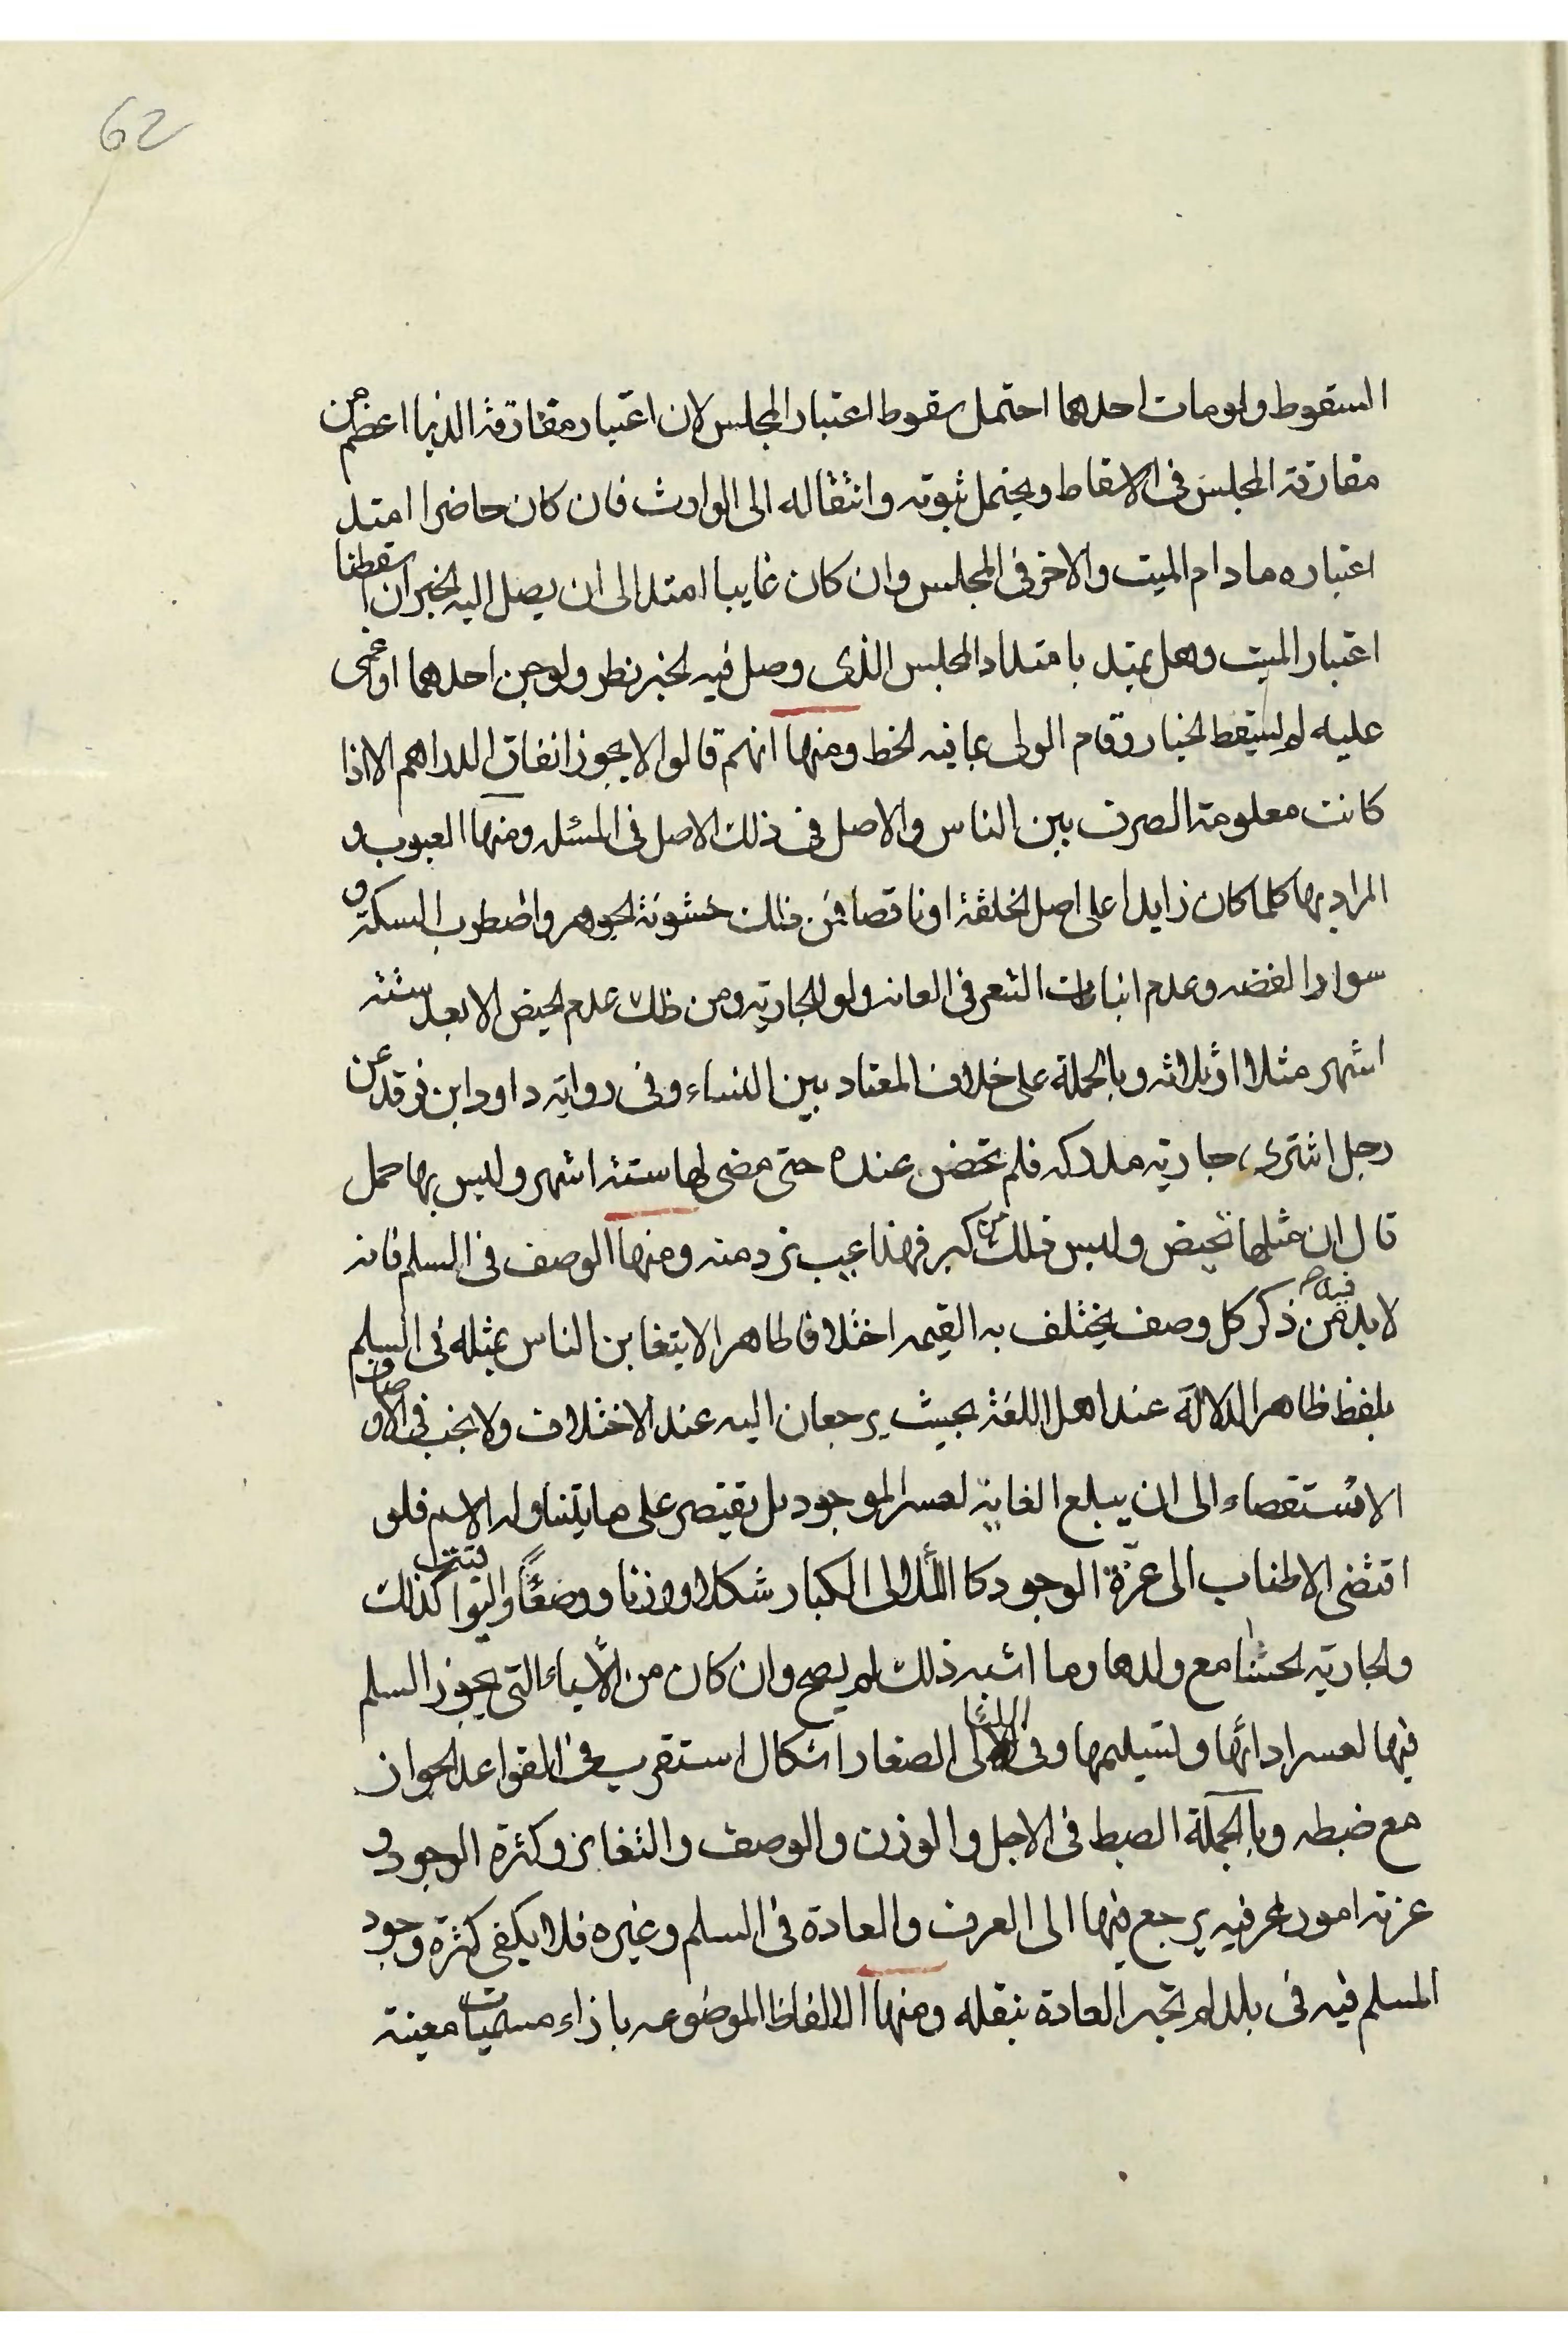 62
السقوط ولو مات احدهما احتمل سقوط اعتبار المجلس لان اعتبار مفارقة الدنيا اعظم من
مفارقة المجلس فى الاسقاط ويحتمل ثبوته وانتقاله الى الوارث فان كان حاضرا امتد
اعتباره ما دام الميت والاخر فى المجلس وان كان غايبا امتد الى ان يصل اليه الخبر ان اسقطنا
اعتبار الميت وهل يمتد بامتداد المجلس الذى وصل فيه الخبر نظر ولو جن احدهما او غمى
عليه لم يسقط الخيار وقام الولى بما فيه الحظ ومنها انهم قالوا لا يجوز انفاق الدراهم الا اذا
كانت معلومة الصرف بين الناس والاصل فى ذلك الاصل فى المسئله ومنها العيوب و
المراد بها كلما كان زايدا على اصل الخلقة او ناقصا فمن ذلك خشونة الجوهر واضطرب السكة و
سواد الفضه وعدم انبات الشعر فى العانه ولو الجاريه ومن ذلك عدم الحيض الا بعد ستته
اشهر مثلا او ثلاثه وبالجملة على خلاف المعتاد بين النساء وفى رواية داود ابن فرقد عن
رجل اشترى جاريه مدركه فلم تحض عنده حتى مضى لها ستة اشهر وليس بها حمل
قال ان مثلها تحيض وليس ذلك من كبر فهذا عيب ترد منه ومنها الوصف فى السلم فانه
لا بد فيه من ذكر كل وصف يختلف به القيمه اختلافا ظاهر الا يتغابن الناس بمثله فى السلم
بلفظ ظاهر الدلالة عند اهل اللغة بحيث يرجعان اليه عند الاختلاف ولا يجب فى الاوصاف
الاستقصاء الى ان يبلع الغاية لعسر الموجود بل يقتصر على ما يتناوله الاسم فلو
اقتضى الاطناب الى عزة الوجود كاللألى الكبار شكلا ووزنا ووضعًا واليواقيت كذلك
والجاريه الحسنا مع ولدها وما اشبه ذلك لم يصح وان كان من الأشياء التى يجوز السلم
فيها لعسر ادائها وتسليمها وفى اللألى الصغار اشكال استقرب فى القواعد الجواز
مع ضبطه وبالجملة الضبط فى الاجل والوزن والوصف والتغابن وكثرة الوجود و
عزته امور عرفيه يرجع فيها الى العرف والعادة فى السلم وغيره فلا يكفى كثرة وجود
المسلم فيه فى بلد لم تجر العادة بنقله ومنها الالفاظ الموضوعه بازاء مسميات معينة